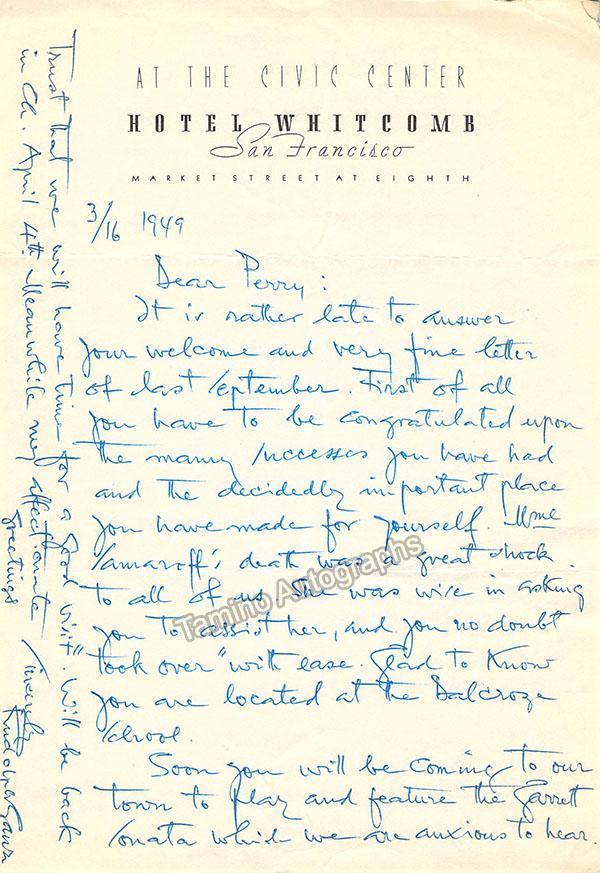 AT THE CIVIC CENTER
HOTEL WHITCOMB
San Francisco
MARKET STREET AT EIGHTH
3/16 1949
Dear Perry:
It is rather late to answer
your welcome and very fine letter
of last September. First of all
you have to be congratulated upon
the many successes you have had
and the decidedly important place
you have made for yourself. Mme
Samaroff's death was a great shock
to all of us. She was wise in asking
you to assist her, and you no doubt
"took over" with ease. Glad to know
you are located at the Dalcroze
School.
Soon you will be coming to our
town to play and feature the Garrett
Sonata which we are anxious to hear.
Trust that we will have time for a "good visit". Will be back
in Ch. April 4th. Meanwhile my affectionate
greetings
Sincerely
Rudolph Ganz
Tamino Autographs